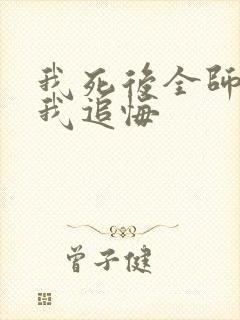 我死後全師
我追悔
曾子健